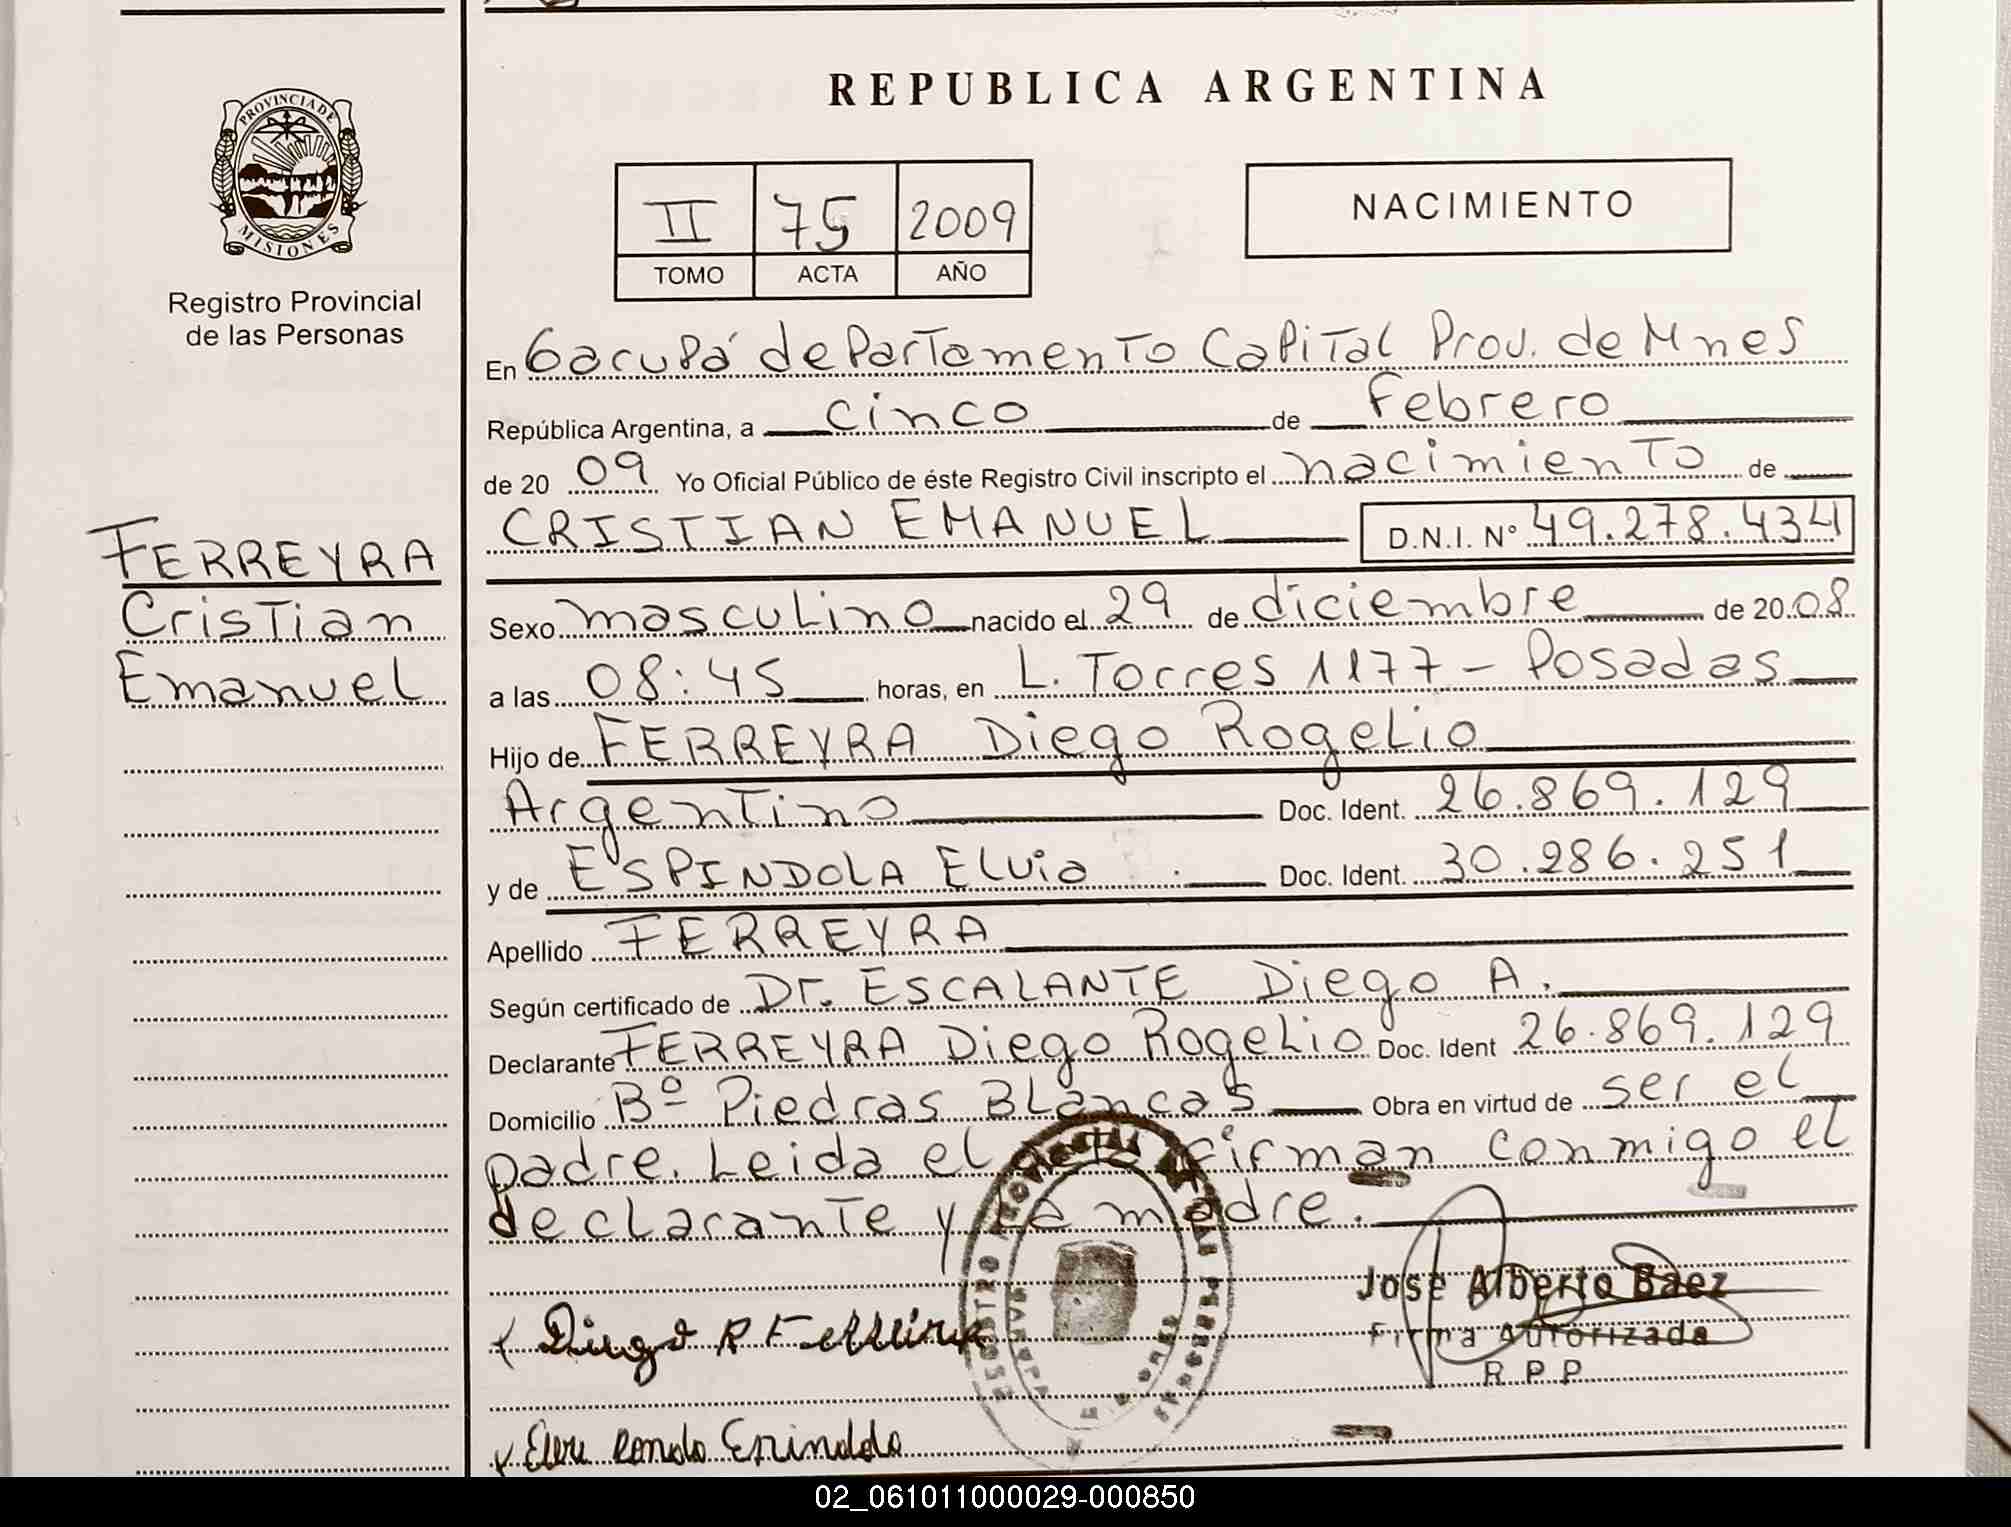 REPUBLICA ARGENTINA
PROVINCIA DE
MISIONES
Registro Provincial
de las Personas
II 75 2009
TOMO ACTA AÑO
NACIMIENTO
En Garupá departamento Capital Prov. de Mnes
República Argentina, a cinco de Febrero
de 20 09 Yo Oficial Público de éste Registro Civil inscripto el nacimiento de
CRISTIAN EMANUEL D.N.I. N° 49.278.434
FERREYRA
Cristian
Emanuel
Sexo masculino nacido el 29 de diciembre de 20 08
a las 08:45 horas, en L. Torres 1177 - Posadas
Hijo de FERREYRA Diego Rogelio
Argentino Doc. Ident. 26.869.129
y de ESPINDOLA Elvia Doc. Ident. 30.286.251
Apellido FERREYRA
Según certificado de Dr. ESCALANTE Diego A.
Declarante FERREYRA Diego Rogelio Doc. Ident 26.869.129
Domicilio Bº Piedras Blancas Obra en virtud de ser el
padre. Leida el acta firman conmigo el
declarante y la madre.
Jose Alberto Baez
Firma Autorizada
R P P
Diego R
02_061011000029-000850